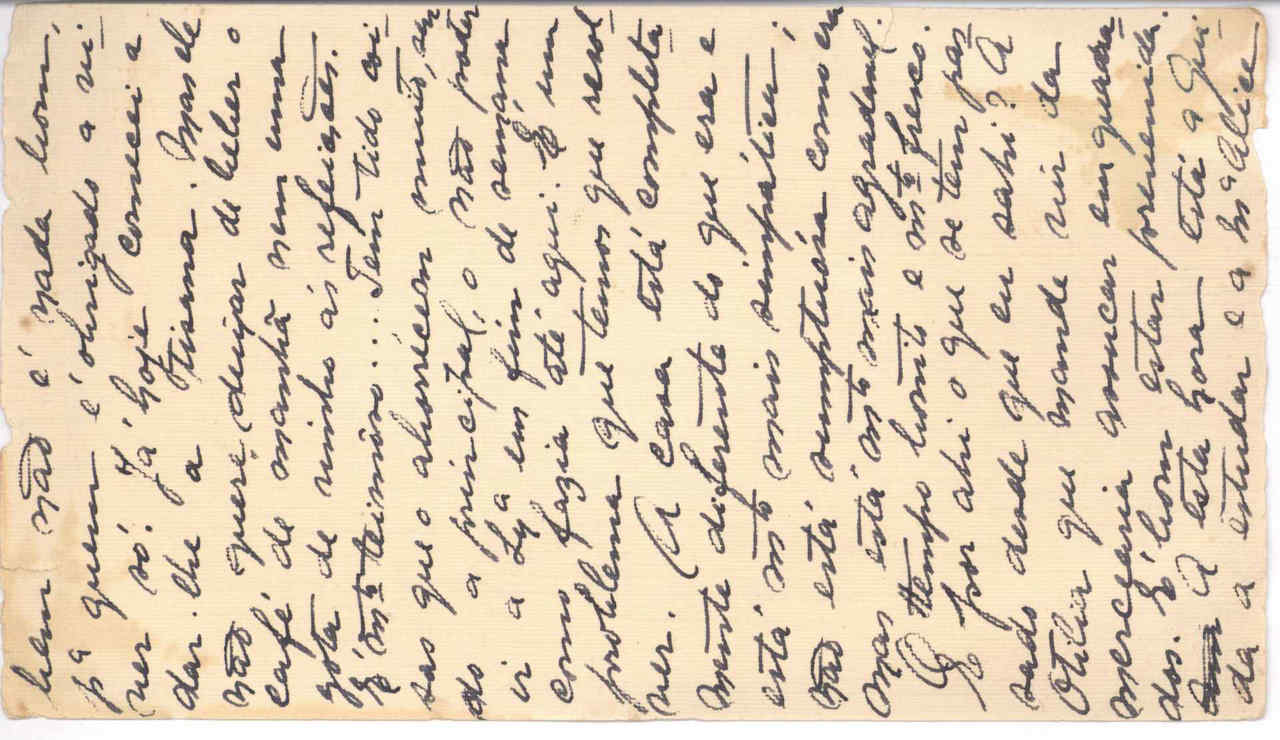 bem não é nada bom,
pª quem é obrigado a vi-
ver só. Já hoje comecei a
dar-lhe a Tisana. Mas ele
não quere deixar de beber o
café de manhã nem uma
gôta de vinho ás refeições.
É mtº teimôso... Tem tido coi-
sas que o aborrécem muito, sen
do a principal, o não poder
ir a Lxª em fim de semana
como fazia até aqui. É um
problema que temos que resol-
ver. A casa está completa-
mente diferente do que era e
está mtº mais simpática;
não está sumptuósa como era
mas está mtº mais agradavel.
O tempo bonito e mtº fresco.
E por ahi o que se tem pas-
sado desde que eu sahi? A
Otilia que mande vir da
mercearia assucar em quadra-
dos. É bom estar prevenida.
A esta hora está a Gui-
da a estudar e a Mª Alice